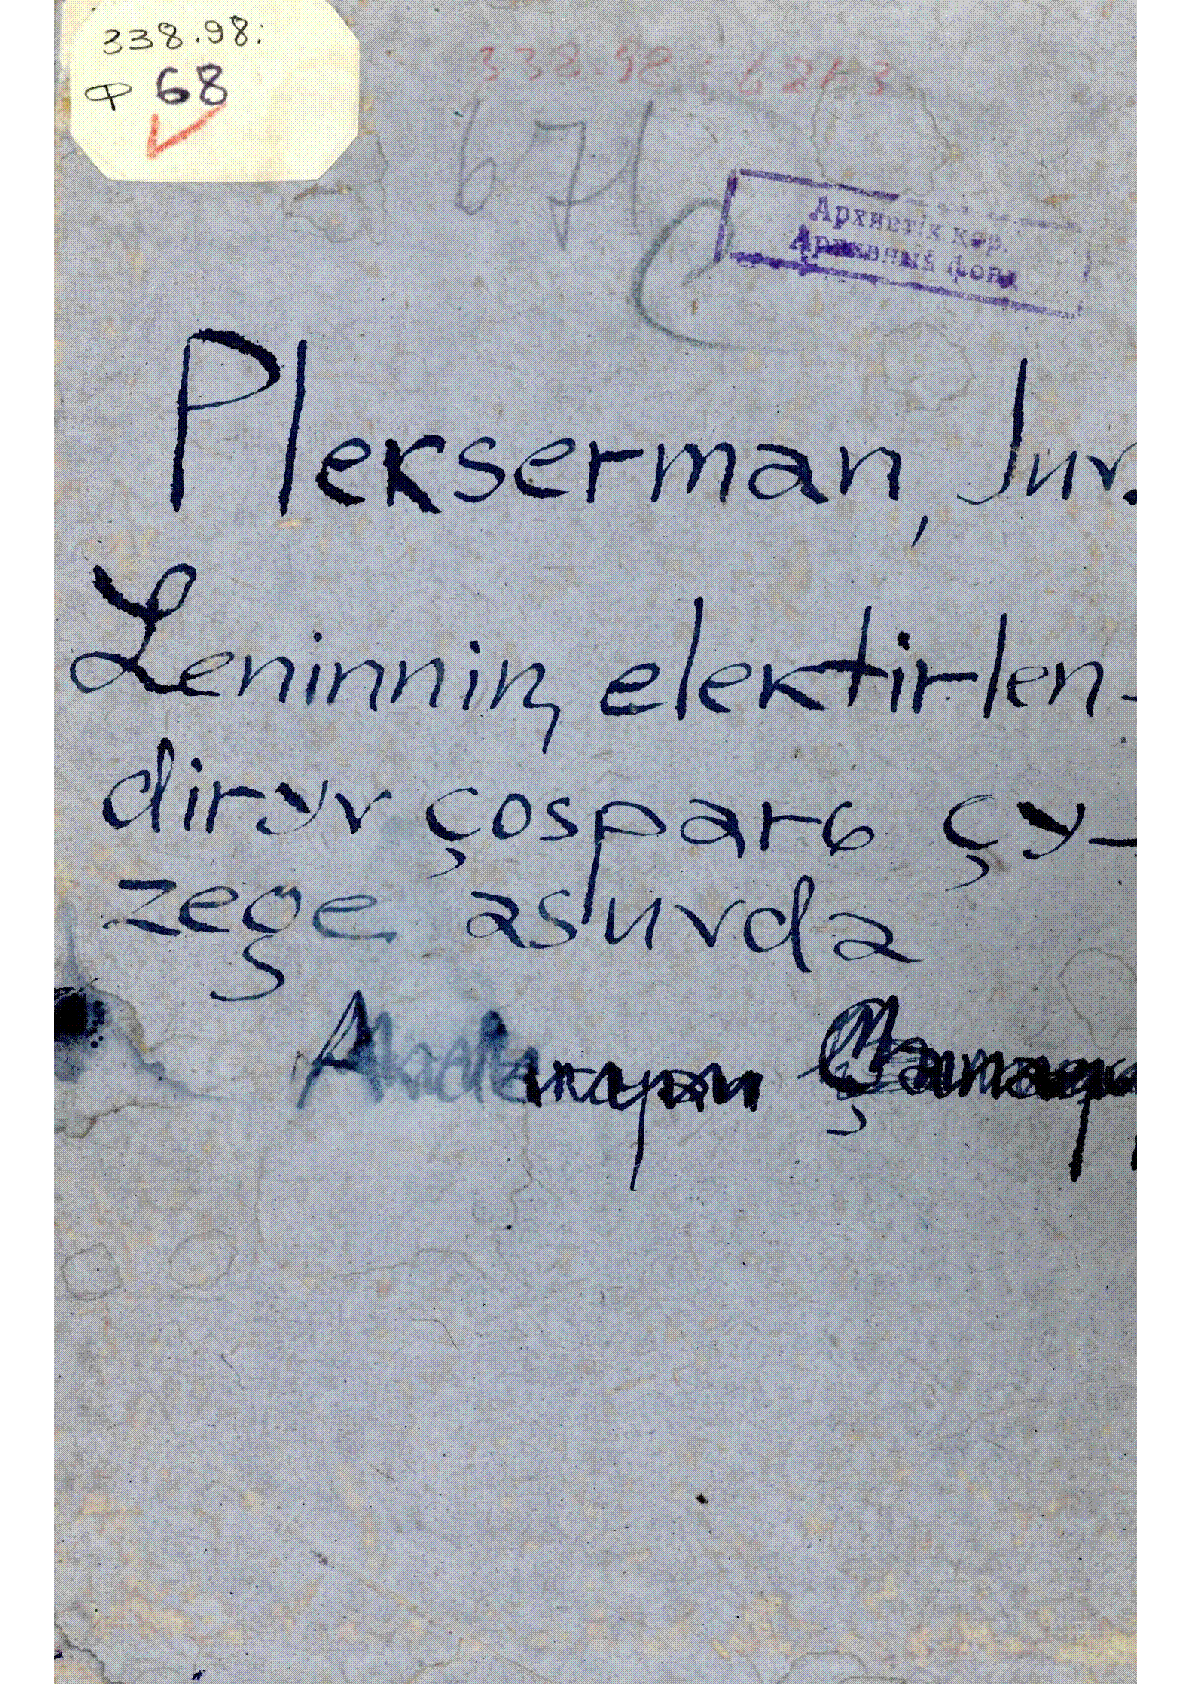 338.98:
Ф 68
338.98 : 621.3
671
Архивтік қор.
Архивный фонд
Plekserman, Juv.
Leninniꞑ elektirlen-
diryv çosparь çy-
zege asuvda